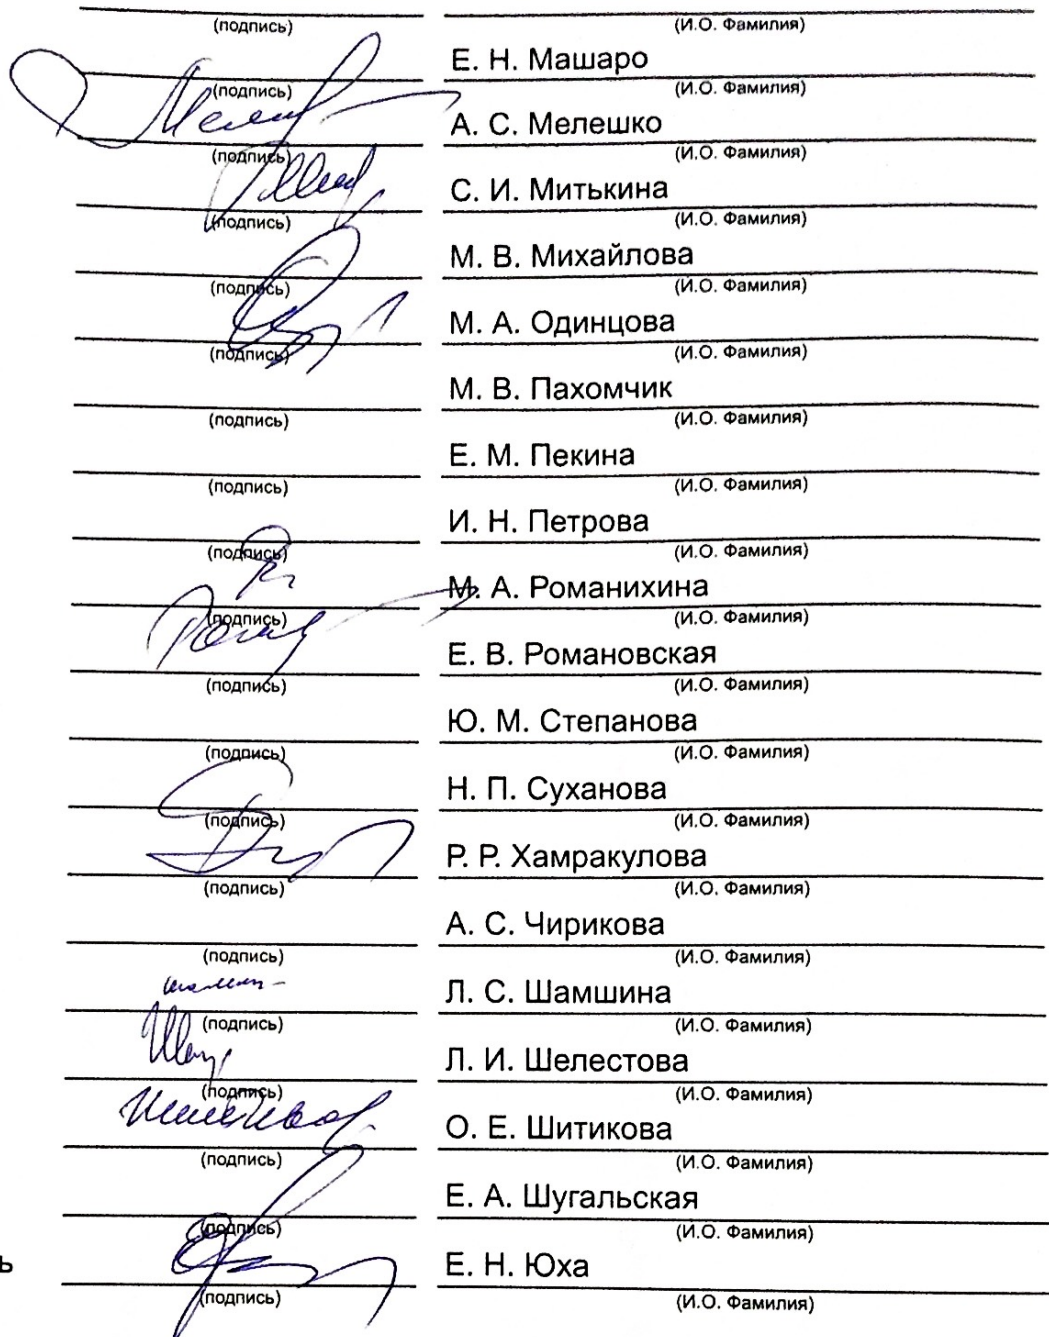 (подпись) (И.О. Фамилия)
Е. Н. Машаро
(подпись) (И.О. Фамилия)
А. С. Мелешко
(подпись) (И.О. Фамилия)
С. И. Митькина
(подпись) (И.О. Фамилия)
М. В. Михайлова
(подпись) (И.О. Фамилия)
М. А. Одинцова
(подпись) (И.О. Фамилия)
М. В. Пахомчик
(подпись) (И.О. Фамилия)
Е. М. Пекина
(подпись) (И.О. Фамилия)
И. Н. Петрова
(подпись) (И.О. Фамилия)
М. А. Романихина
(подпись) (И.О. Фамилия)
Е. В. Романовская
(подпись) (И.О. Фамилия)
Ю. М. Степанова
(подпись) (И.О. Фамилия)
Н. П. Суханова
(подпись) (И.О. Фамилия)
Р. Р. Хамракулова
(подпись) (И.О. Фамилия)
А. С. Чирикова
(подпись) (И.О. Фамилия)
Л. С. Шамшина
(подпись) (И.О. Фамилия)
Л. И. Шелестова
(подпись) (И.О. Фамилия)
О. Е. Шитикова
(подпись) (И.О. Фамилия)
Е. А. Шугальская
(подпись) (И.О. Фамилия)
ь Е. Н. Юха
(подпись) (И.О. Фамилия)